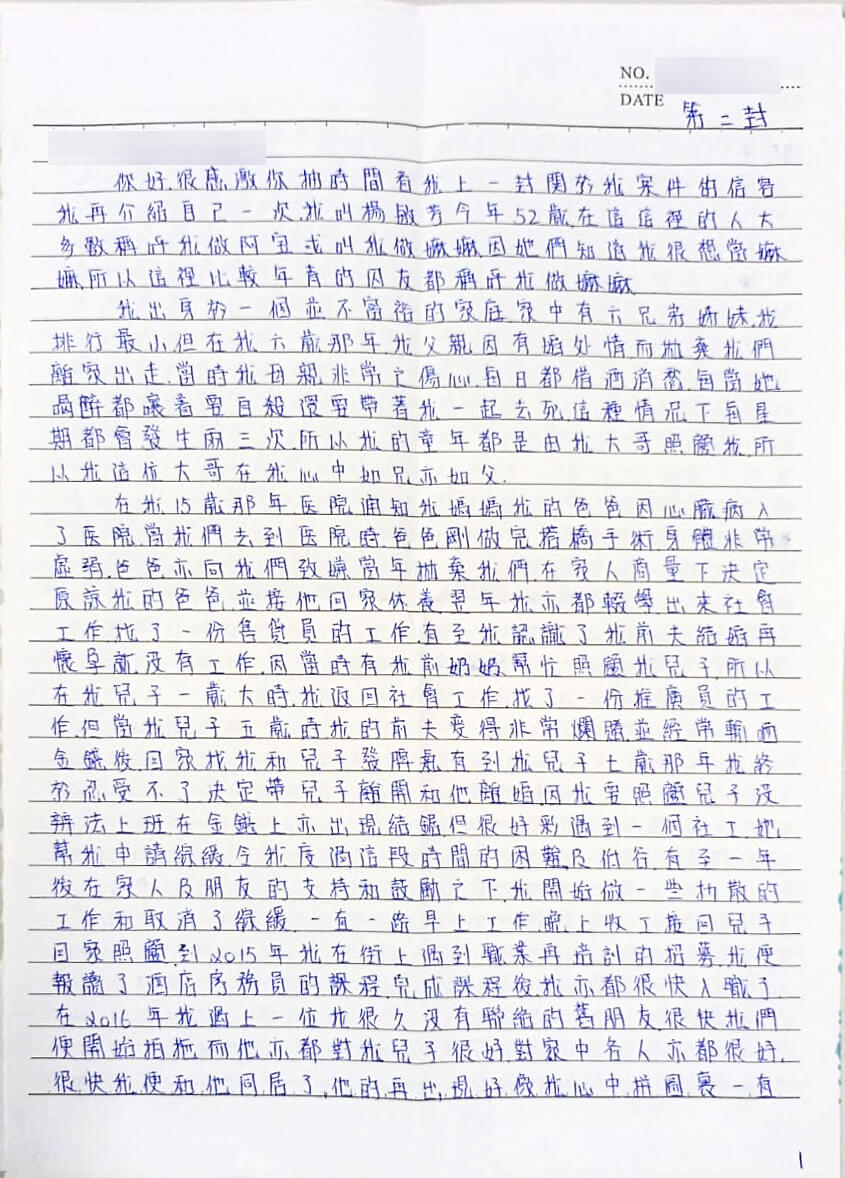 NO.
DATE
第二封
你好.很感激你抽時間看我上一封関於我案件的信容
我再介紹自己一次.我叫楊敏芳今年52歲.在這這裡的人大
多數稱呼我做阿宝或叫我做嫲嫲.因她們知道我很想當嫲
嫲.所以這裡比較年青的囚友都稱呼我做嫲嫲.
我出身於一個並不富裕的家庭家中有六兄弟姊妹.我
排行最小.但在我六歲那年.我父親因有婚外情而拋棄我們
離家出走.當時我母親非常之傷心.每日都借酒消愁.每當她
喝醉都嚷着要自殺還要帶著我一起去死.這種情況下每星
期都會發生兩三次.所以我的童年都是由我大哥照顧我.所
以我這位大哥在我心中如兄亦如父.
在我15歲那年医院通知我媽媽我的爸爸因心臟病入
了医院.當我們去到医院時.爸爸剛做完搭橋手術.身體非常
虛弱.爸爸亦向我們致歉當年拋棄我們.在家人商量下決定
原諒我的爸爸.並接他回家休養.翌年我亦都輟學出來社會
工作.找了一份售貨員的工作.直至我認識了我前夫結婚再
懷孕就没有工作.因當時有我前奶奶幫忙照顧我兒子.所以
在我兒子一歲大時.我返回社會工作.找了一份推廣員的工
作.但當我兒子五歲時我的前夫变得非常爛賭並經常輸晒
金錢後回家找我和兒子發脾氣直到我兒子七歲那年我終
於忍受不了決定帶兒子離開和他離婚.因我要照顧兒子沒
辨法上班在金錢上亦出現結鋸.但很好彩遇到一個社工她
幫我申請綜緩.令我度過這段時間的困難.及彷徨.直至一年
後在家人及朋友的支持和鼓勵之下.我開始做一些折散的
工作和取消了綜緩.一直一路早上工作晚上收工接回兒子
回家照顧.到2015年我在街上遇到職業再培訓的招募.我便
報讀了酒店房務員的課程.完成課程後我亦都很快入職了.
在2016年我遇上一位我很久没有聯絡的舊朋友.很快我們
便開始拍拖.而他亦都對我兒子很好.對家中各人亦都很好.
很快我便和他同居了.他的再出現好像我心中拼圖裏一直
1